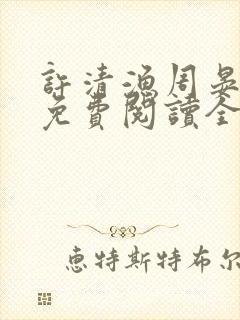 許清漁周晏
免費閱讀全
惠特斯特布尔